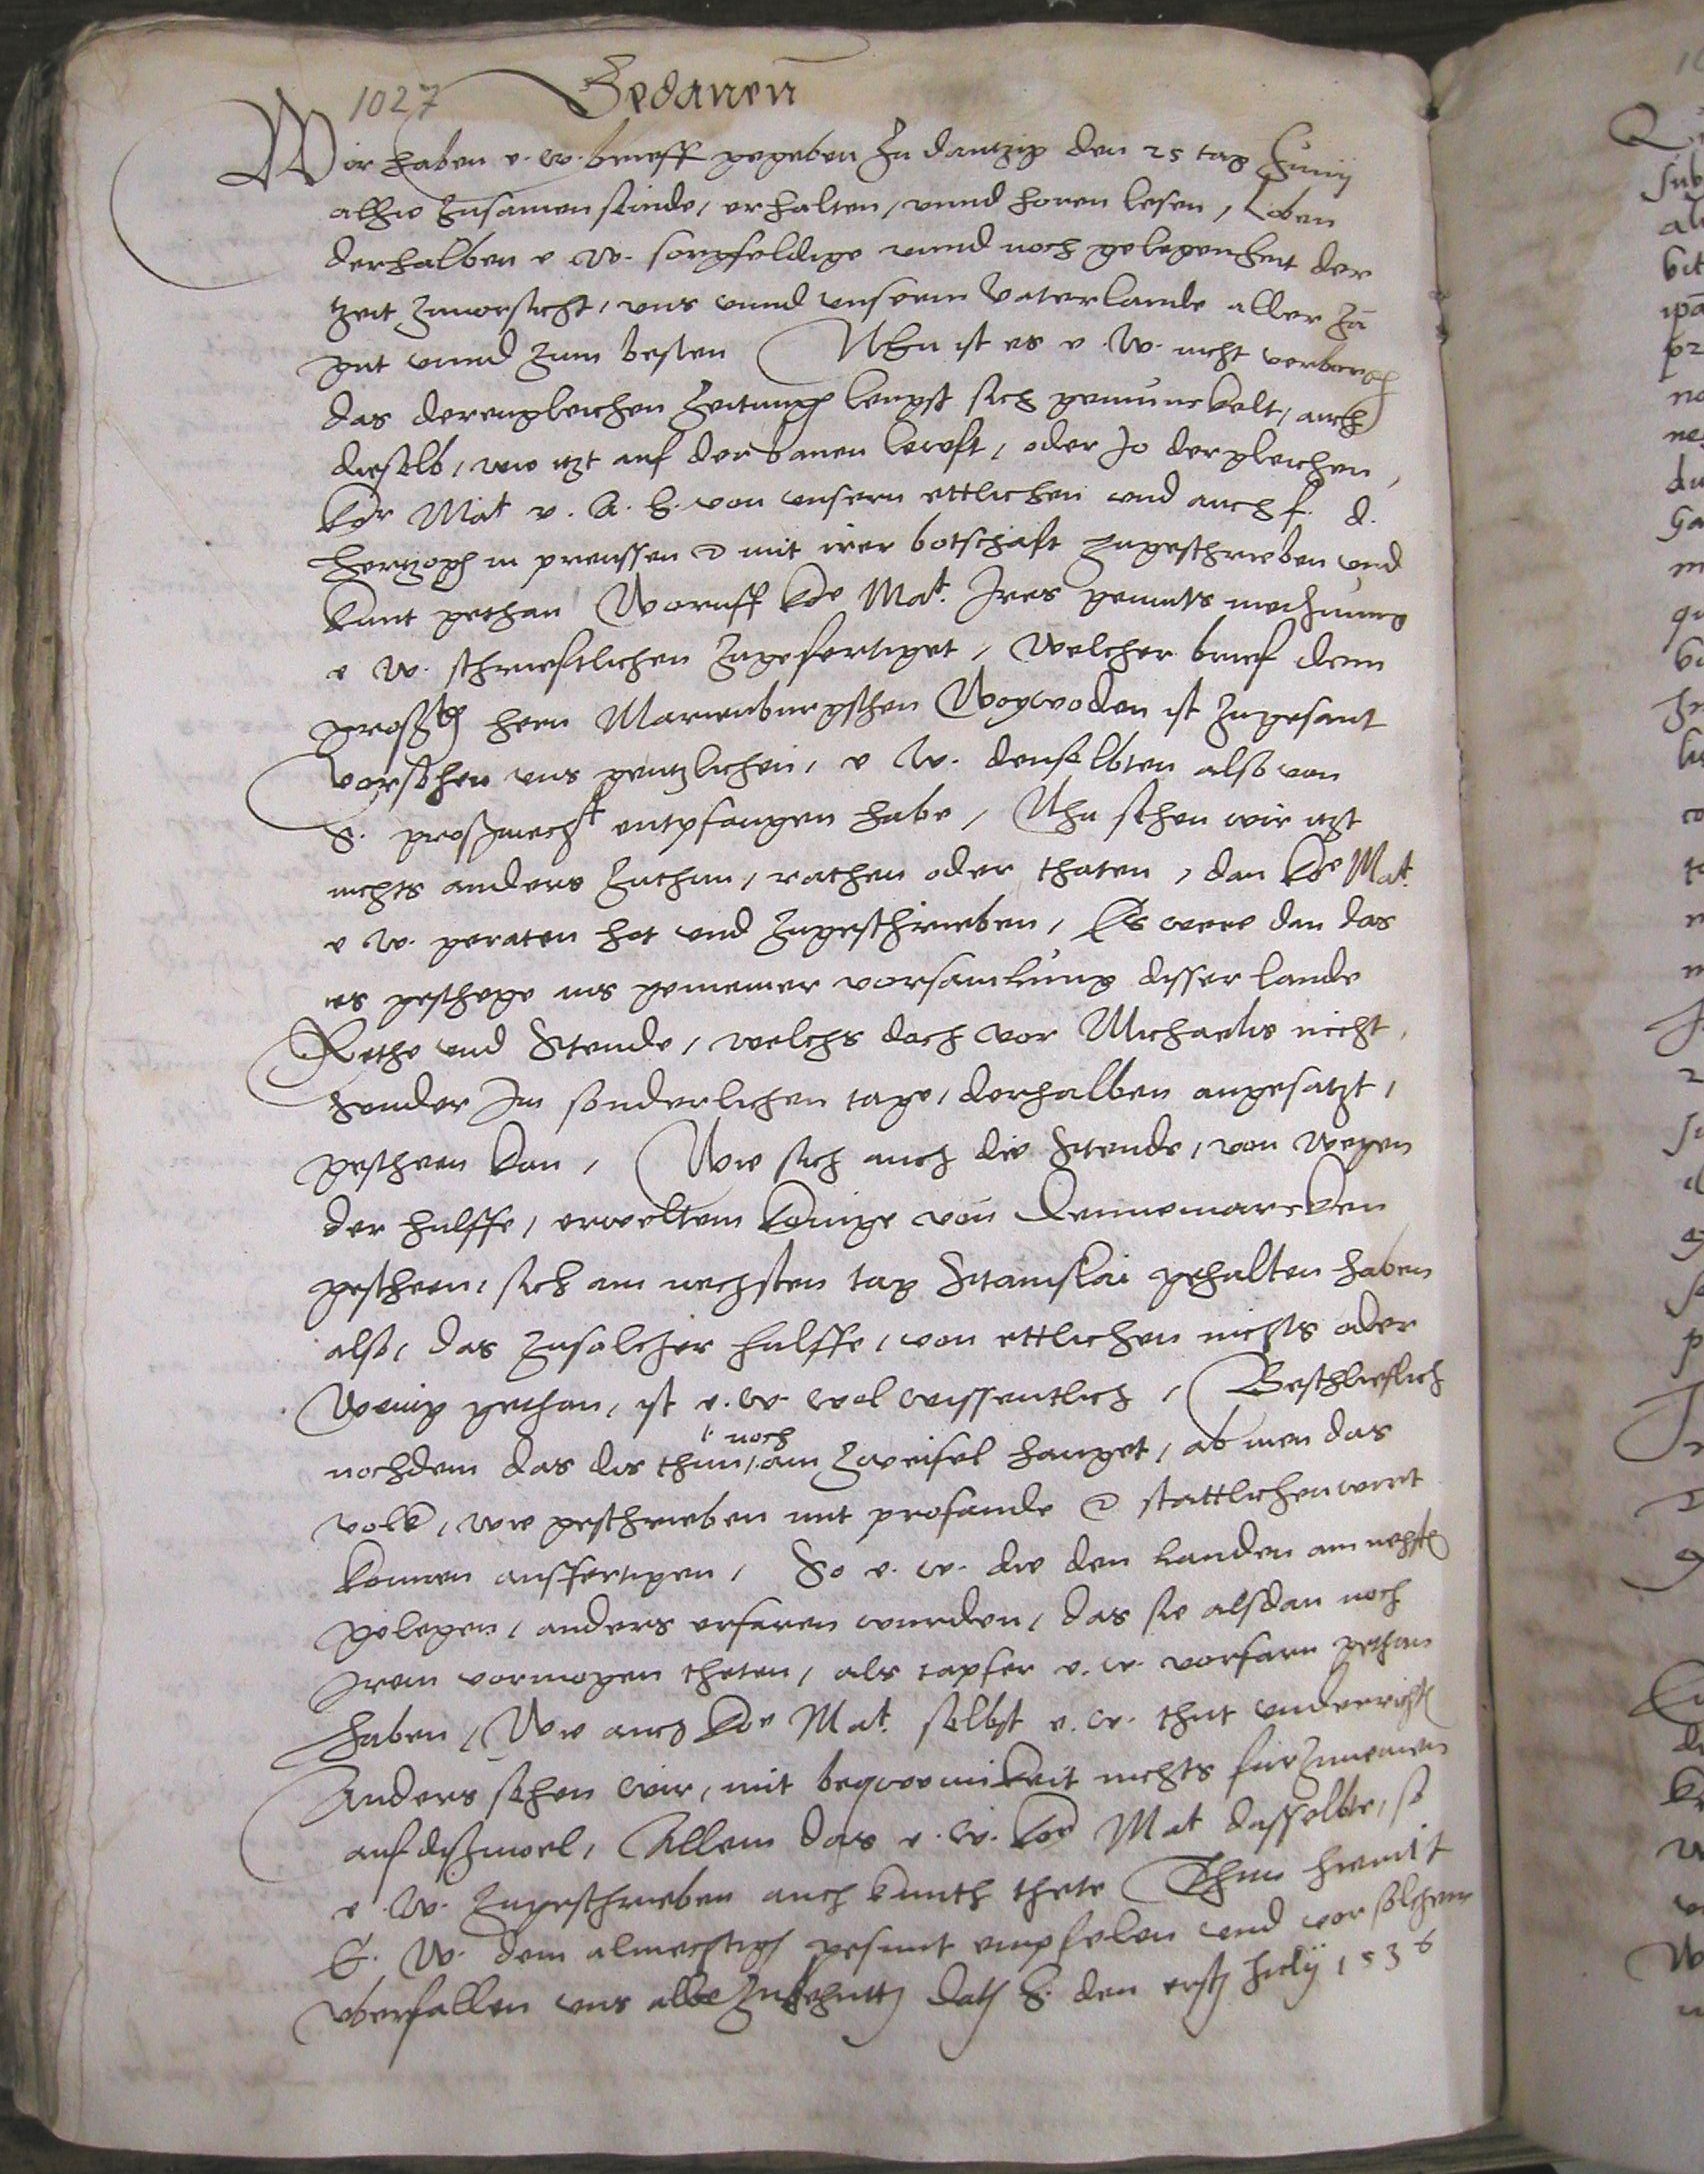 1027 Gedanen
Wir haben e. w. brieff gegeben zu dantzig den 25 tag Junij
alhie zusamen kinde, erhalten, vnnd horen lesen, Loben
derhalben e w. sorgfeldige vnnd noch gelegenheit der
zeit zuuorsicht, vns vnnd vnserm Vaterlande aller zu
gut vnnd zum besten Nhu ist es e. W. nicht verborgen
das derengleichen zeitung lengst sich gemunckelt, auch
dieselb, wie itzt auf der banen leuft, oder Jo dergleichen,
kor Mat v. a. h. von vnsern ettlichen vnd auch f. d.
hertzogen in preussen etc mit irer botschaft zugeschrieben vnd
kunt gethan Woruff koe Mat. Ires gemuts meinung
e W. schrieftlichen zugefertiget, Welcher brief dem
großmechtigen hern Marienburgschen Woywoden ist zugesant
vorsehen vns gentzlichen, e W. denselbten also von
S. großmecht entpfangen habe, Nhu sehen wir itzt
nichts anders zuthun, rathen oder thaten, dan koe Mat.
e W. geraten hat vnd zugeschrieben, Es were dan das
es geschege ins gemeiner vorsamlung disser lande
Rethe vnd Stende, welchs doch vor Michaelis nicht,
sonder Im sonderlichen tage, derhalben angesatzt,
gescheen kan, Wie sich auch die Stende, von wegen
der hulffe, erweltem konige von Dennemarcken
gescheen, sich am nechsten tag Stanislai gehalten haben
also, das zusolcher hulffe, von ettlichen nichts oder
Wenig gethan, ist e. w. wol wissentlich, Beschlieslich
nochdem das dis thun, noch am zweifel hanget, ab men das
volk, wie geschrieben mit profande etc stattlichen wert
konnen ausfertigen, So e. w. die den Landen am nehsten
gelegen, anders erfaren wurden, das sie alsdan noch
Irem vormogen theten, als tapfer e. w. vorfarn gethan
haben, Wie auch koe Mat. selbst e. w. thut underrichten
Anders sehen wir, mit beqwemikeit nichts furzunemen
auf dißmol, Allein das e. W. koe Mat dasselbte, so
e. W. zugeschrieben auch kunth thete Thun hiemit
E. W. dem almechtigen gesunt empfelen vnd vor solchem
vberfallen vns alle zubehutten Dat S. den ersten Julij 1536